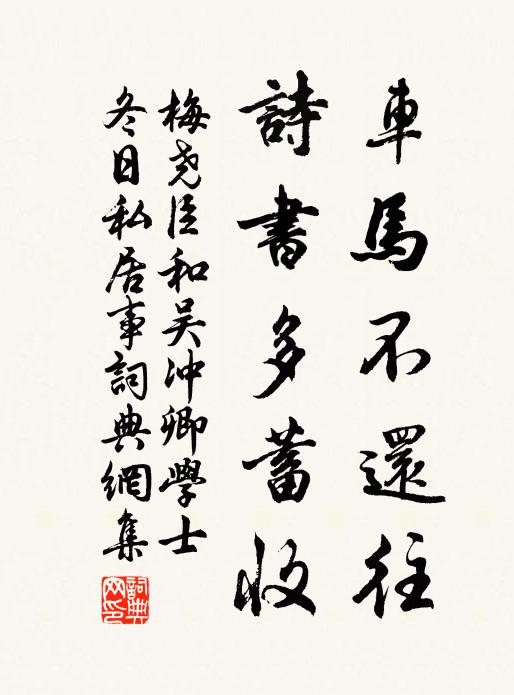 車馬不還往
詩書多蓄收
梅尧臣和吴冲卿學士
冬日私居事詞典網集
詞典网印